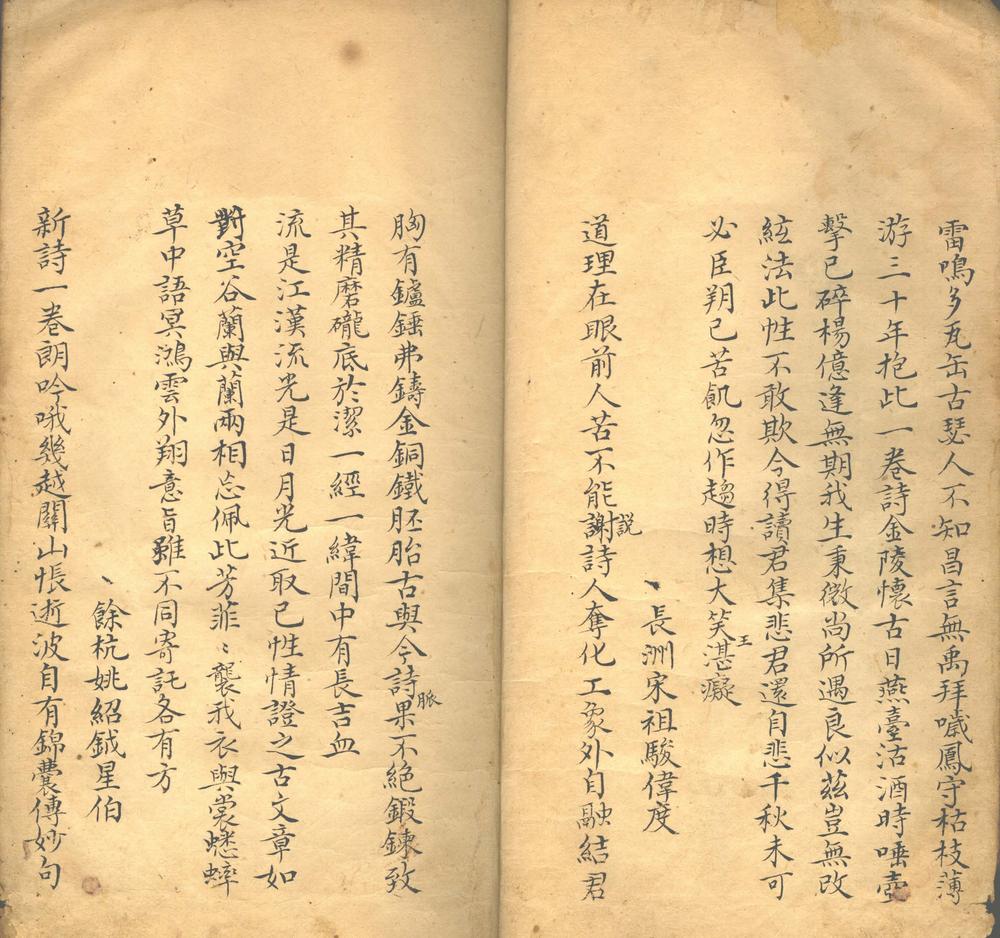 雷鳴多瓦缶古瑟人不知昌言無禹拜噦鳳守枯枝薄
游三十年抱此一卷詩金陵懷古日燕臺沽酒時唾壺
擊已碎楊億逢無期我生秉微尚所遇良似茲豈無改
絃法此性不敢欺今得讀君集悲君還自悲千秋未可
必臣朔已苦飢忽作趨時想大笑王湛癡
長洲宋祖駿偉度
道理在眼前人苦不能謝説詩人奪化工象外自融結君
胸有鑪錘弗鑄金銅鐵胚胎古與今詩脈果不絕鍛鍊致
其精磨礲底於潔一經一緯間中有長吉血
流是江漢流光是日月光近取已性情證之古文章如
對空谷蘭與蘭兩相忘佩此芳菲〻襲我衣與裳蟋蟀
草中語冥鴻雲外翔意旨雖不同寄託各有方
餘杭姚紹鉞星伯
新詩一卷朗吟哦幾越關山悵逝波自有錦囊傳妙句